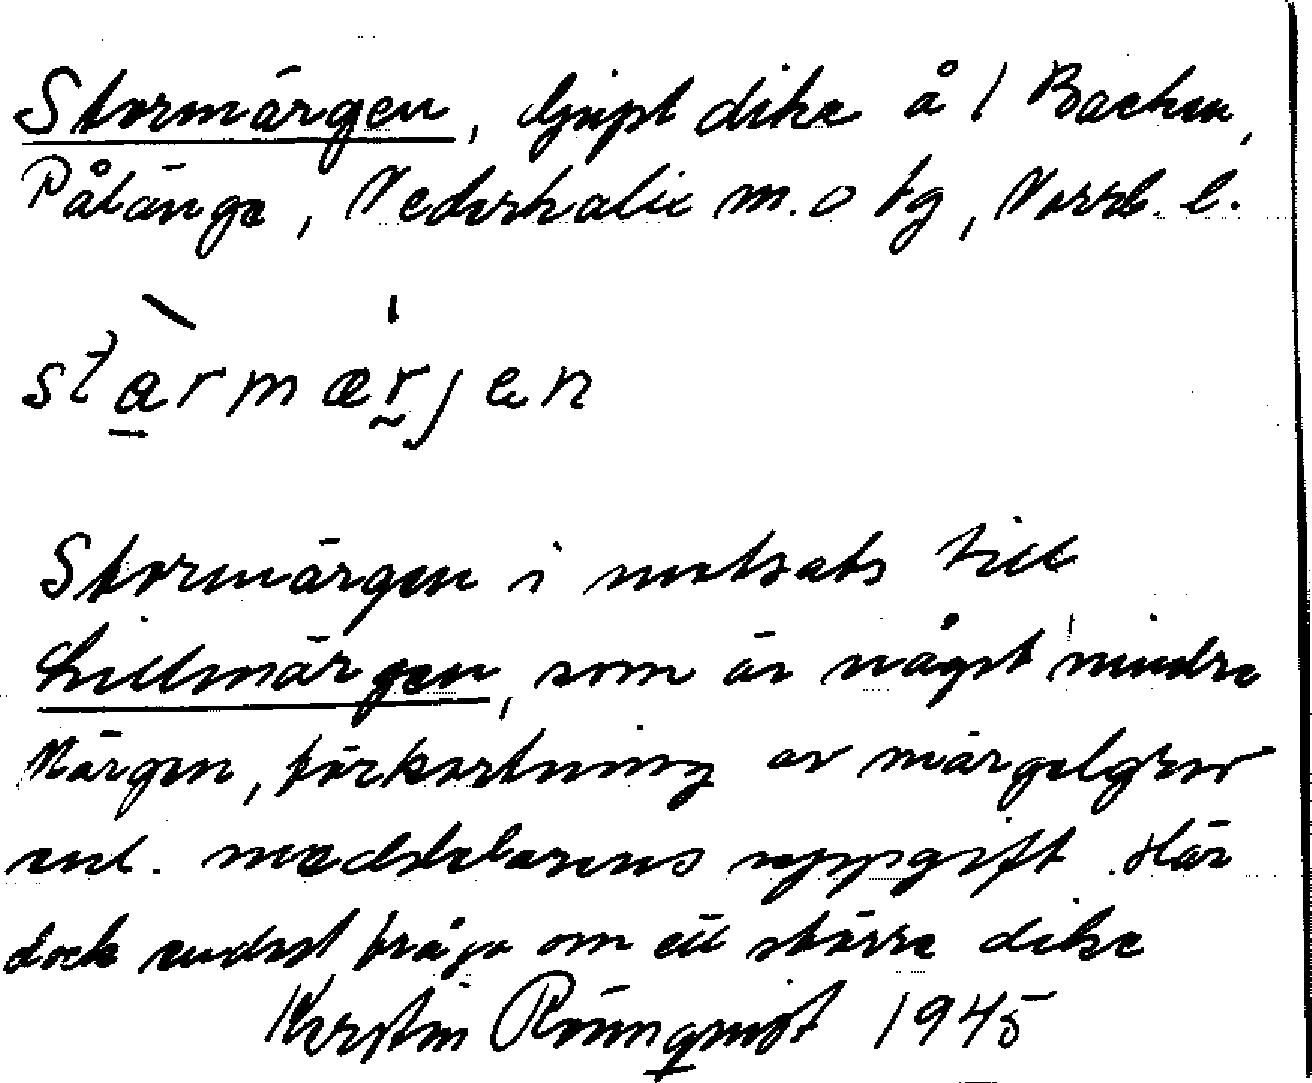 Stormärgen, djupt dike å 1 Backen,
Pålänge, Nederkalix m. o tg, Norrb. l.
stàrmærjen
Stormärgen i motsats till
Lillmärgen, som är något mindre
Märgen, förkortning av märgelgrav
enl. meddelarens uppgift. Här
dock endast fråga om ett större dike
Kerstin Rönnqvist 1945